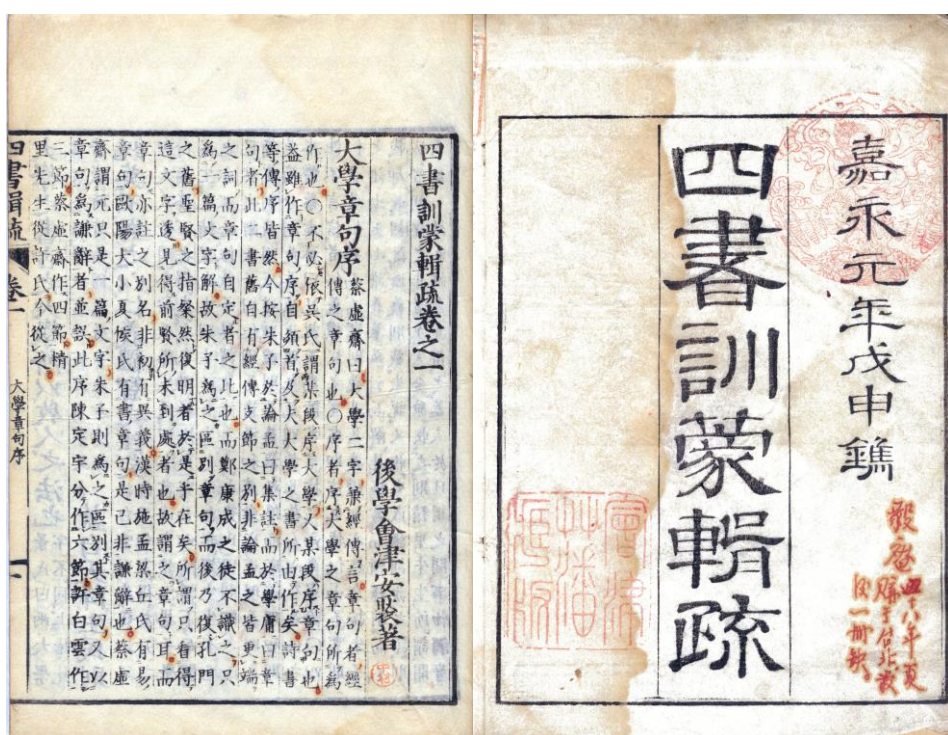 嘉永元年戊申鐫
四書訓蒙輯疏
毅庵
四十八年夏
購于台北
後一冊缺
四書訓蒙輯疏卷之一
後學會津安褧著
大學章句序
蔡虛齋曰大學二字兼經傳言章句者經
傳之章句也〇序者序大學之章句所爲
作也〇不必依吳氏謂某段序大學某段序章句也
蓋雖作章句序自須首及大學之書所由作矣詩書
等傳序皆然今按朱子於論孟曰集註而於學庸曰章
句者此二書舊自有經傳支節之別非論孟之皆更端
之詞而章句自定者之比也而鄭康成之徒不識之只
爲一篇文字解故朱子爲之區別章句而後乃復孔門
之舊聖賢之指粲然復明者於是乎在矣所謂只看得
這文字透見得前賢所未到處者也故謂之章句耳而
章句亦註之別名非初有異義漢時施孟梁丘氏有易
章句歐陽大小夏侯氏有書章句是已非謙辭也蔡虛
齋謂元只是一篇文字朱子則爲之區別其章句又以
章句爲謙辭者並誤此序陳定宇分作六節許白雲作
三節蔡虛齋作四節精
里先生從許氏今從之
四書輯疏 卷一 大學章句序 一